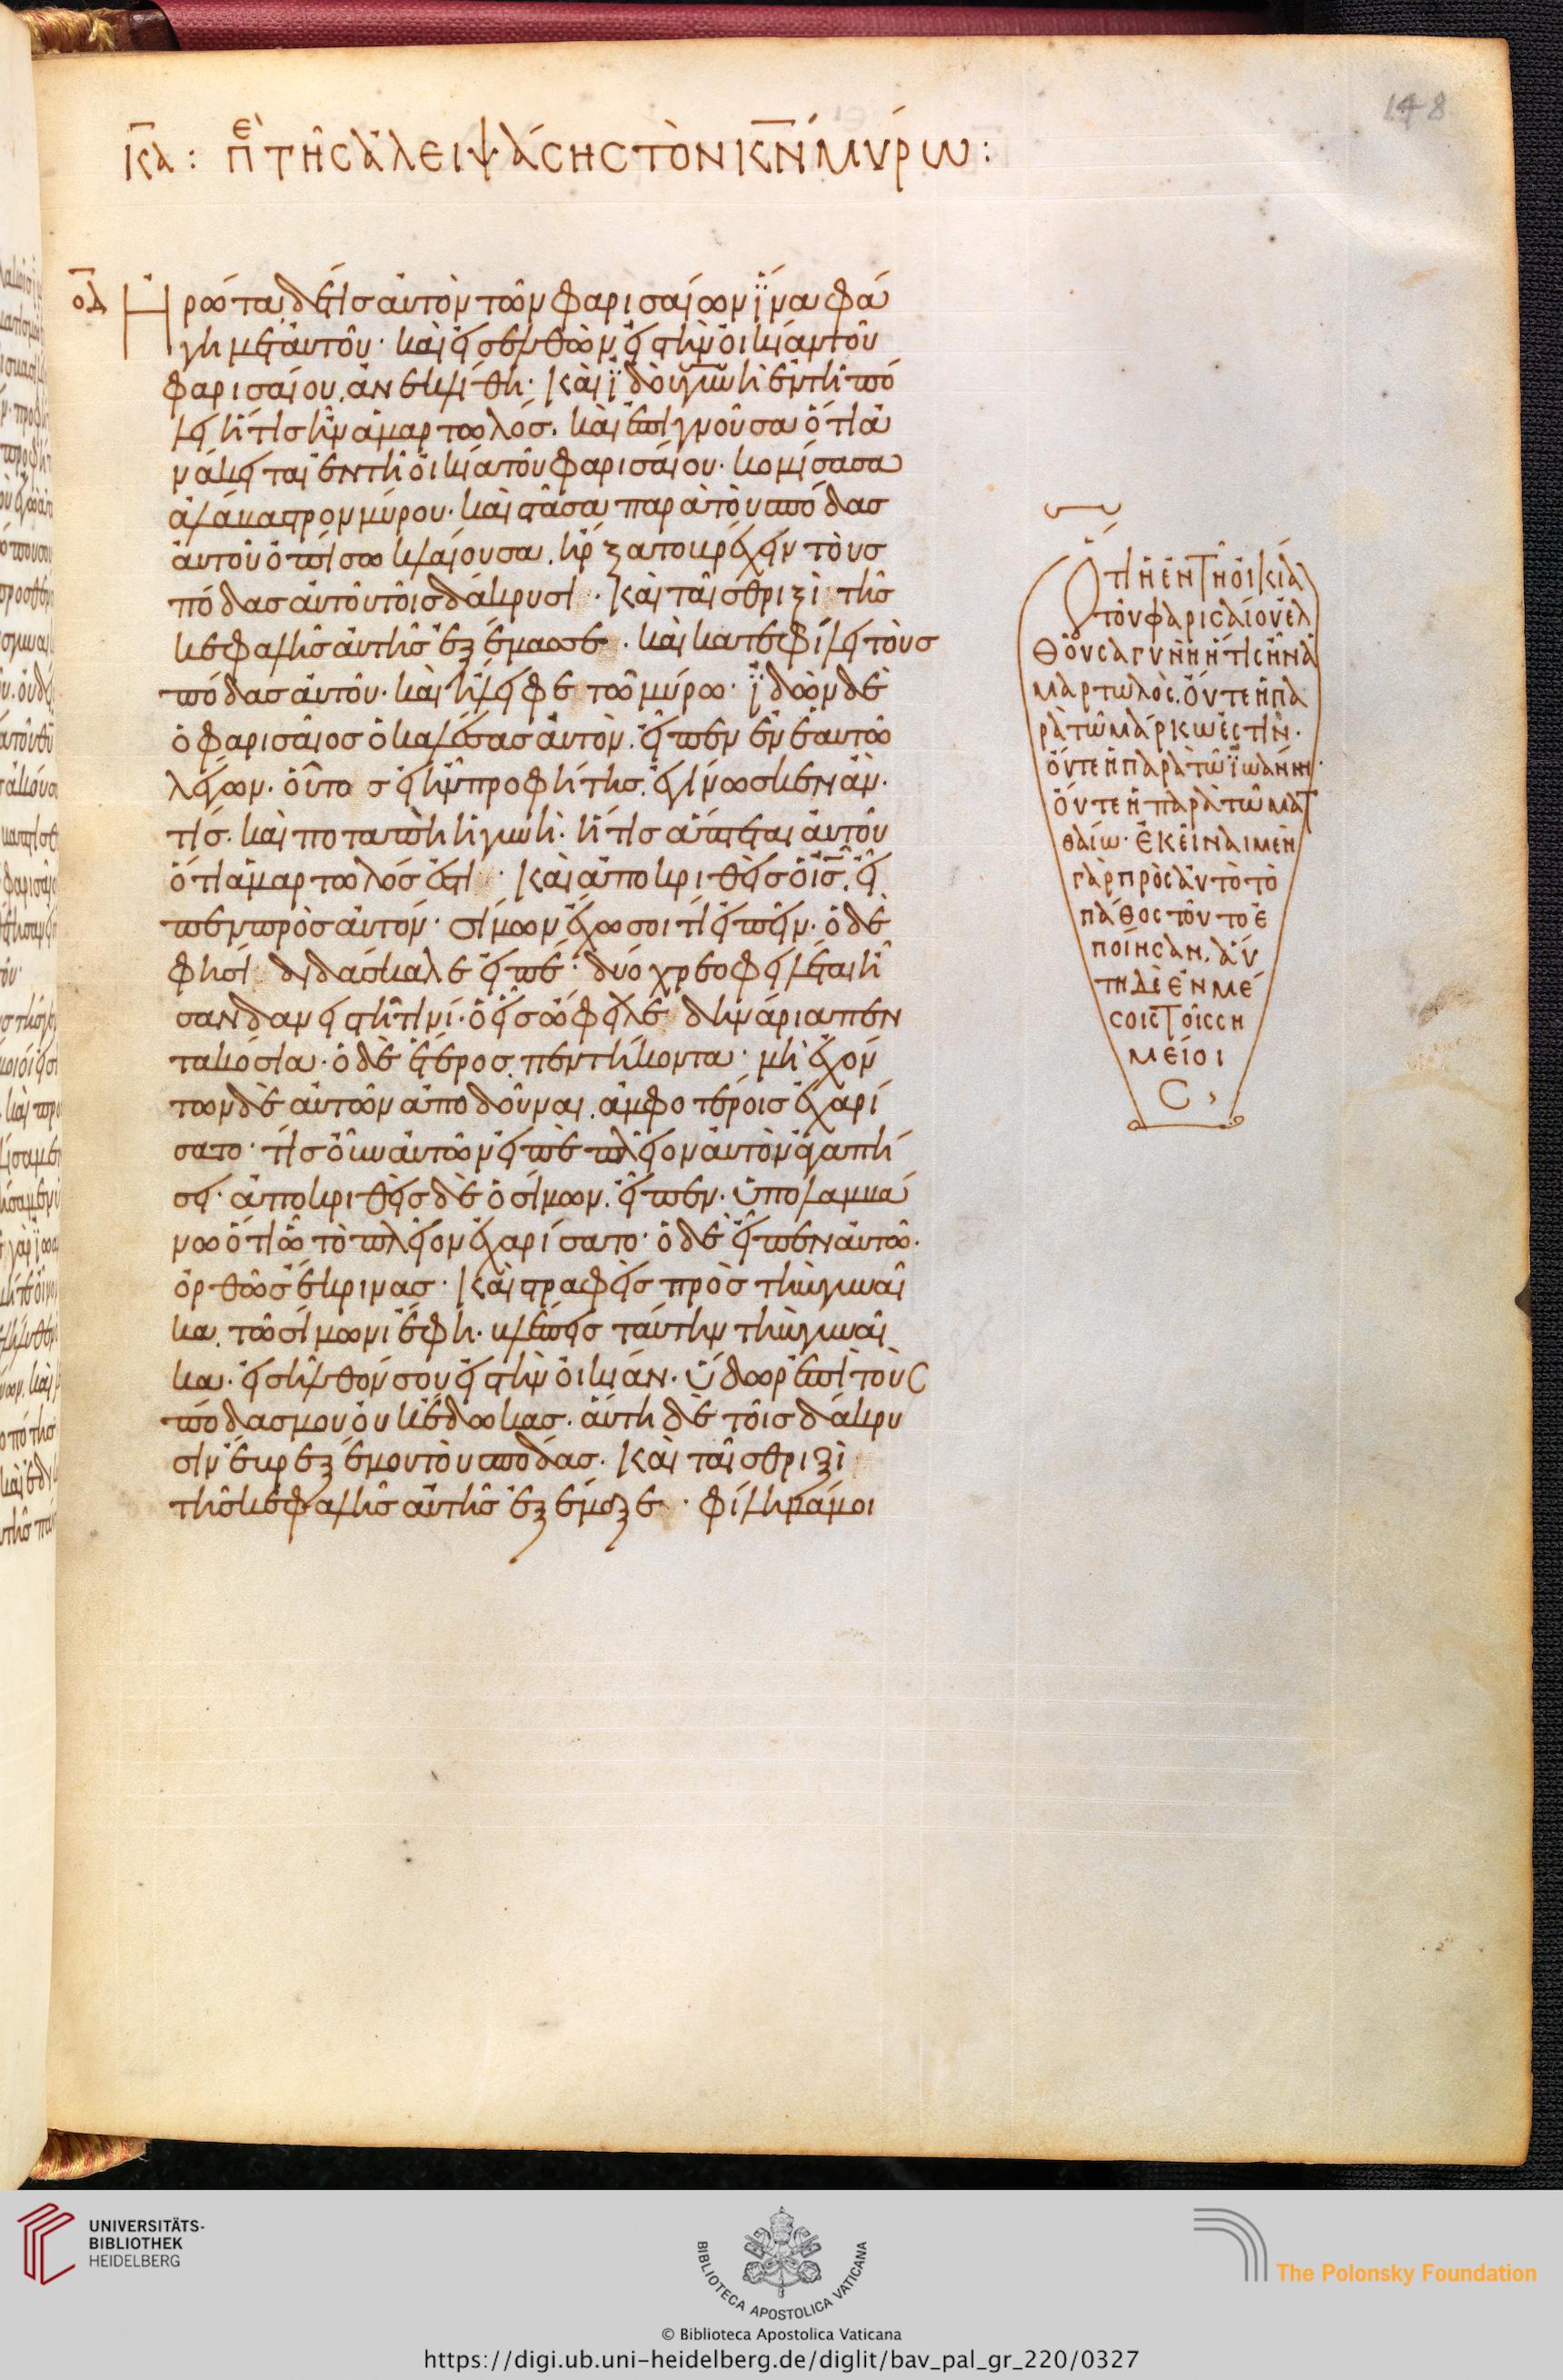 κα: περι τῆς ἀλειψάσης τὸν κν μύρω:
οδ Ἠρώτα δέ τις αὐτὸν τῶν φαρισαίων ϊνα φά
γη μετ' αὐτοῦ· καὶ εἰσελθὼν εἰς τὴν οἰκίαν τοῦ
φαρισαίου. ἀνεκλίθη· Καὶ ϊδοὺ γυνὴ ἐν τῆ πό
λει ἥτις ἦν ἁμαρτωλός. καὶ ἐπιγνοῦσα ὅτι ἀ
νάκειται ἐν τῆ οἰκία τοῦ φαρισαίου· κομίσασα
ἀλάβαστρον μύρου· καὶ στᾶσα παρὰ τοὺς πόδας
αὐτοῦ ὀπίσω κλαίουσα. ἤρξατο βρέχειν τοὺς
πόδας αὐτοῦ τοῖς δάκρυσι· Καὶ ταῖς θριξὶ τῆς
κεφαλῆς αὐτῆς ἐξέμασσε· καὶ κατεφίλει τοὺς
πόδας αὐτοῦ· καὶ ἤλειφε τῶ μύρω· ϊδὼν δὲ
ὁ φαρισαῖος ὁ καλέσας αὐτὸν. εἶπεν ἐν ἑαυτῶ
λέγων· οὗτος εἰ ἦν προφήτης. ἐγίνωσκεν ἂν·
τίς· καὶ ποταπὴ ἡ γυνὴ· ἥτις ἅπτεται αὐτοῦ
ὅτι ἁμαρτωλός ἐστι· Καὶ ἀποκριθεὶς ὁ ις. εἶ
πεν πρὸς αὐτόν· σίμων ἔχω σοι τί εἰπεῖν· ὁ δέ
φησι διδάσκαλε εἰπέ· δύο χρεοφειλέται ἦ
σαν δανειστῆ τινί· ὁ εἷς ὤφειλε δηνάρια πεν
τακόσια· ὁ δὲ ἕτερος πεντήκοντα· μὴ ἐχόν
των δὲ αὐτῶν ἀποδοῦναι. ἀμφοτέροις ἐχαρί
σατο· τίς οὖν αὐτῶν εἰπὲ πλεῖον αὐτὸν ἀγαπή
σει· ἀποκριθεὶς δὲ ὁ σίμων. εἶπεν· ὑπολαμβά
νω ὅτι ὧ τὸ πλεῖον ἐχαρίσατο· ὁ δὲ εἶπεν αὐτῶ·
ὀρθῶς ἔκρινας· Καὶ στραφεὶς πρὸς τὴν γυναῖ
κα. τῶ σίμωνι ἔφη· βλέπεις ταύτην τὴν γυναῖ
κα· εἰσῆλθόν σου εἰς τὴν οἰκίαν· ὕδωρ ἐπὶ τοὺς
πόδας μου οὐκ ἔδωκας· αὕτη δὲ τοῖς δάκρυ
σιν ἔβρεξέ μου τοὺς πόδας· Καὶ ταῖς θριξὶ
τῆς κεφαλῆς αὐτῆς ἐξέμαξε· φίλημά μοι
Ὅτι ἡ ἐν τῆ οἰκία
τοῦ φαρισαίου ἐλ
θοῦσα γυνὴ ἥτις ἦν ἁ
μαρτωλὸς. οὔτε ἡ πα
ρὰ τῶ μάρκω ἐστὶν·
οὔτε ἡ παρὰ τῶ ϊωάννη·
οὔτε ἡ παρὰ τῶ ματ
θαίω· ἐκεῖναι μὲν
γὰρ πρὸς αὐτὸ τὸ
πάθος τοῦτο ἐ
ποίησαν. αὕ
τη δὲ ἐν μέ
σοις τοῖς ση
μείοι
ς,
148
UNIVERSITÄTS-
BIBLIOTHEK
HEIDELBERG
BIBLIOTECA APOSTOLICA VATICANA
The Polonsky Foundation
© Biblioteca Apostolica Vaticana
https://digi.ub.uni-heidelberg.de/diglit/bav_pal_gr_220/0327